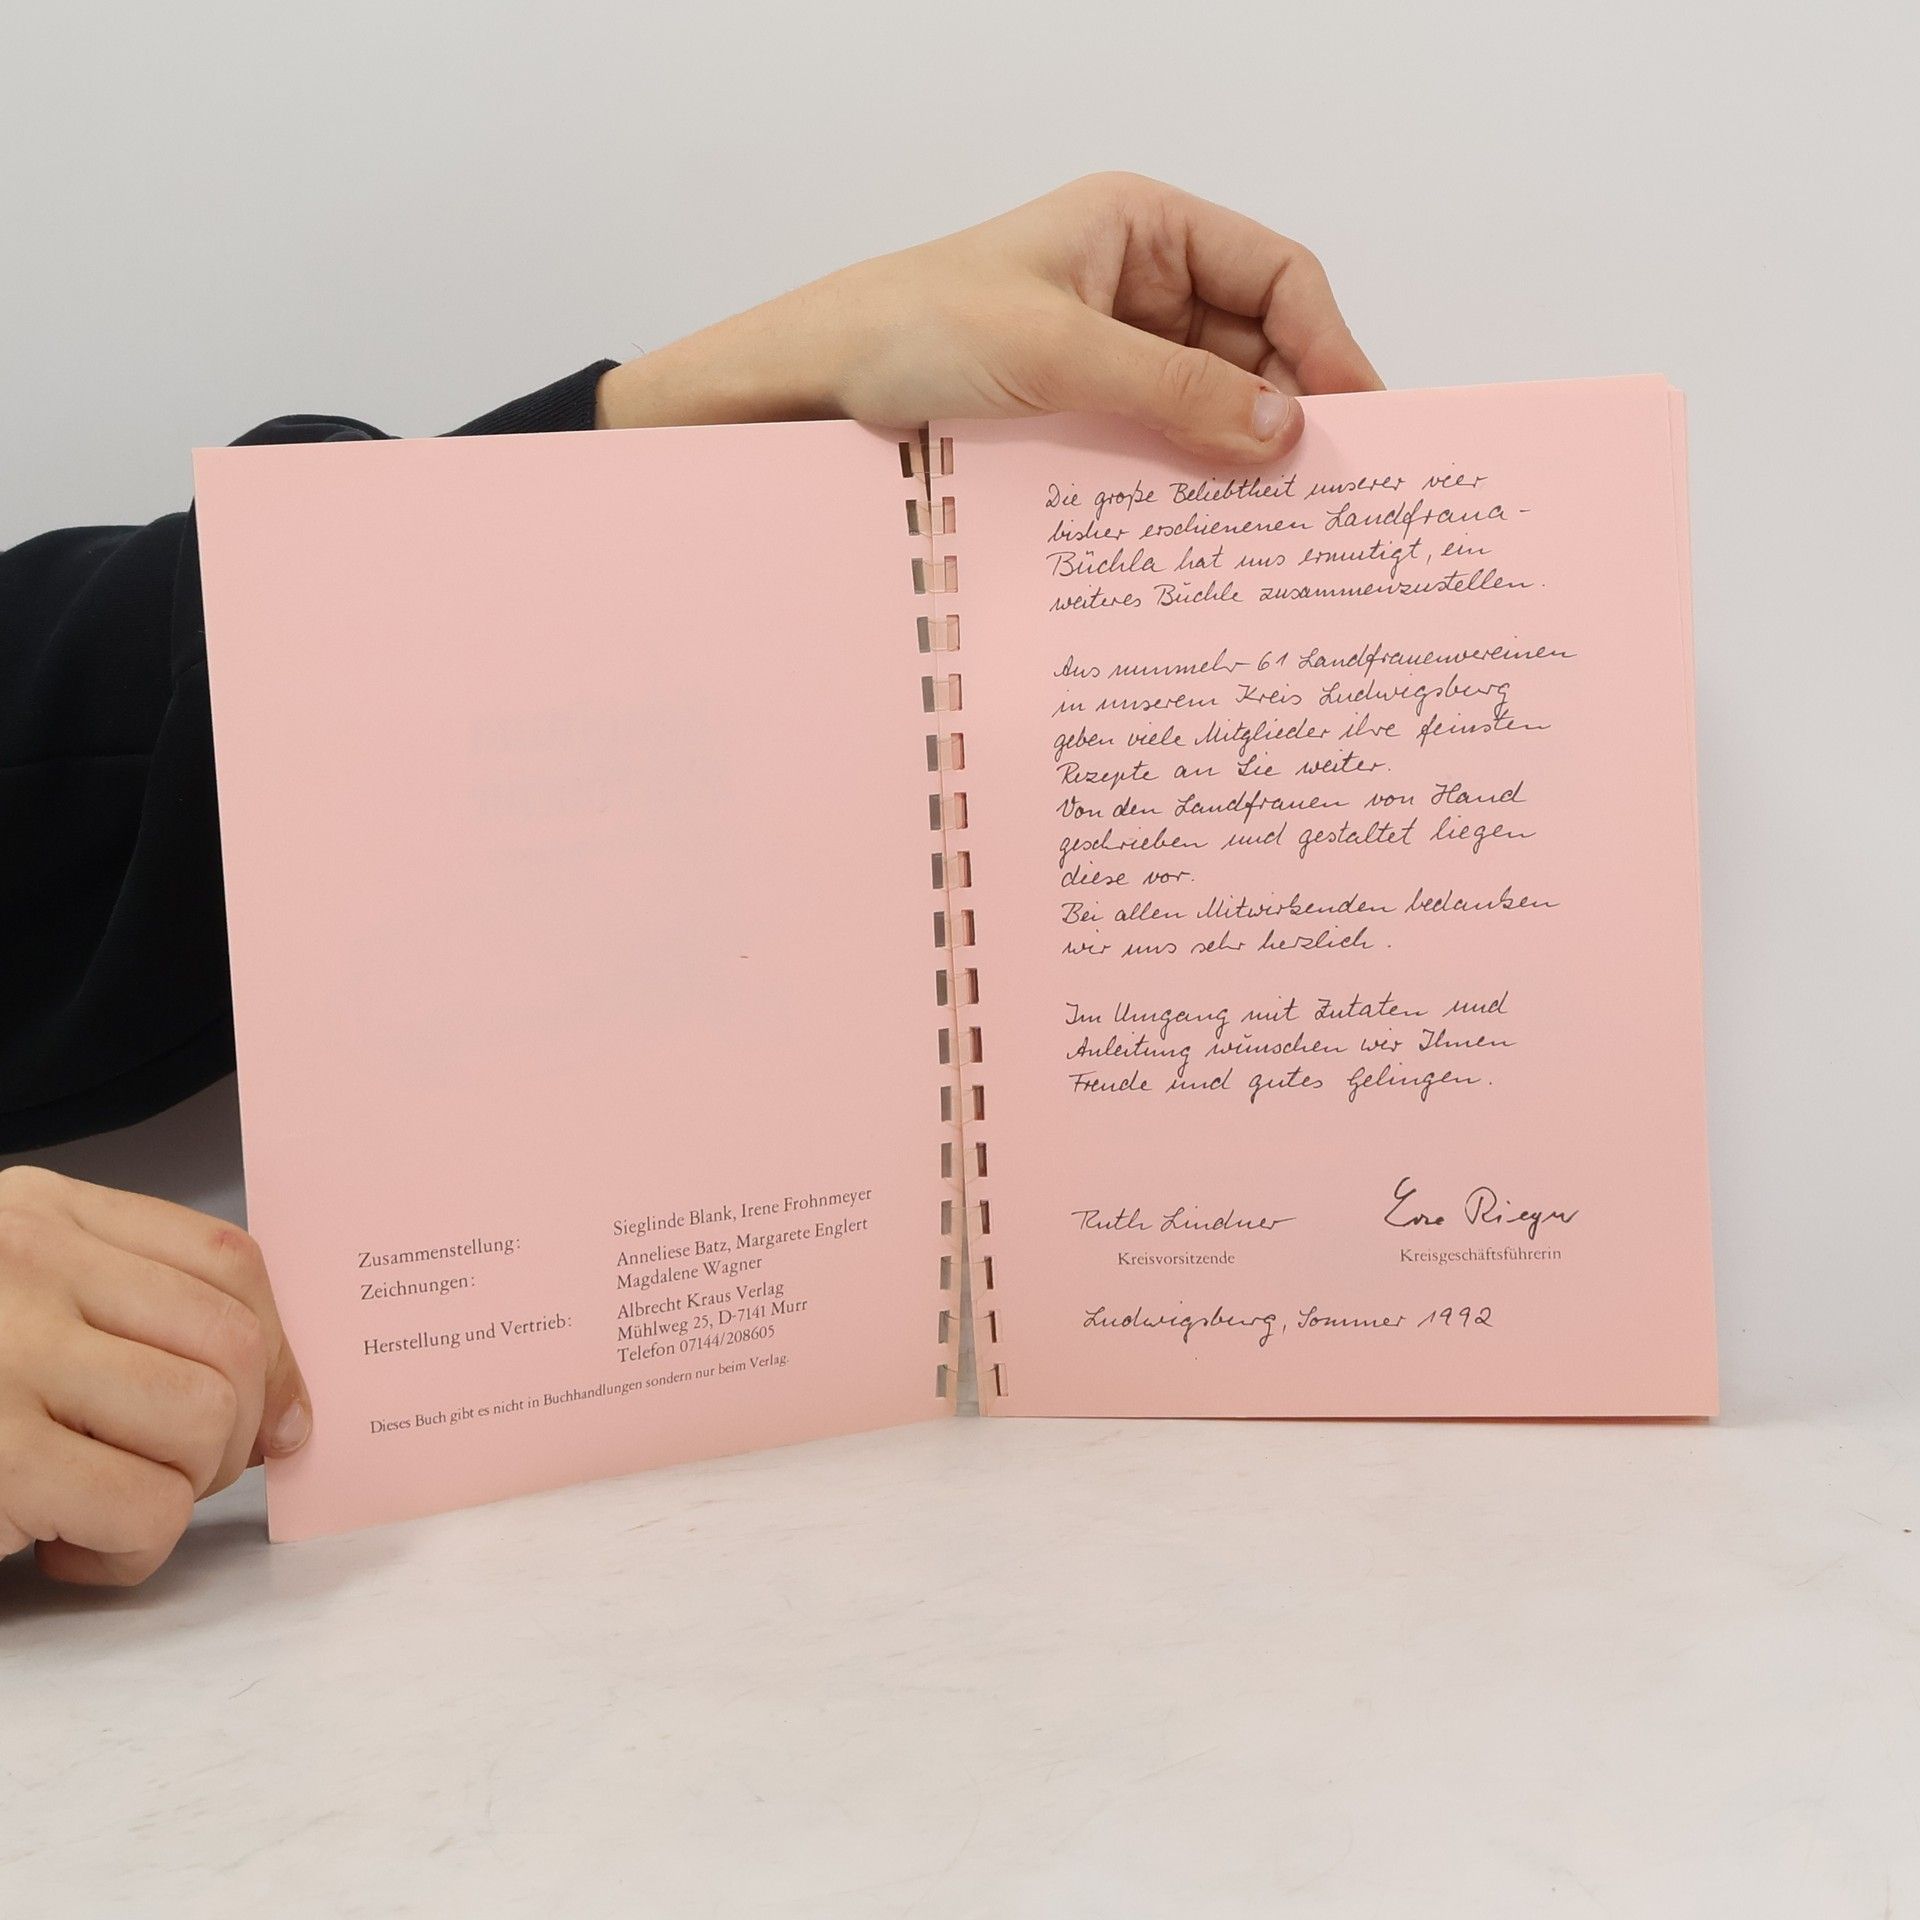 Zusammenstellung: Sieglinde Blank, Irene Frohnmeyer
Zeichnungen: Anneliese Batz, Margarete Englert
Magdalene Wagner
Herstellung und Vertrieb: Albrecht Kraus Verlag
Mühlweg 25, D-7141 Murr
Telefon 07144/208605
Dieses Buch gibt es nicht in Buchhandlungen sondern nur beim Verlag.
Die große Beliebtheit unserer vier
bisher erschienenen Landfraua-
Büchla hat uns ermutigt, ein
weiteres Büchle zusammenzustellen.
Aus nunmehr 61 Landfrauenvereinen
in unserem Kreis Ludwigsburg
geben viele Mitglieder ihre feinsten
Rezepte an Sie weiter.
Von den Landfrauen von Hand
geschrieben und gestaltet liegen
diese vor.
Bei allen Mitwirkenden bedanken
wir uns sehr herzlich.
Im Umgang mit Zutaten und
Anleitung wünschen wir Ihnen
Freude und gutes Gelingen.
Ruth Lindner Eva Rieger
Kreisvorsitzende Kreisgeschäftsführerin
Ludwigsburg, Sommer 1992